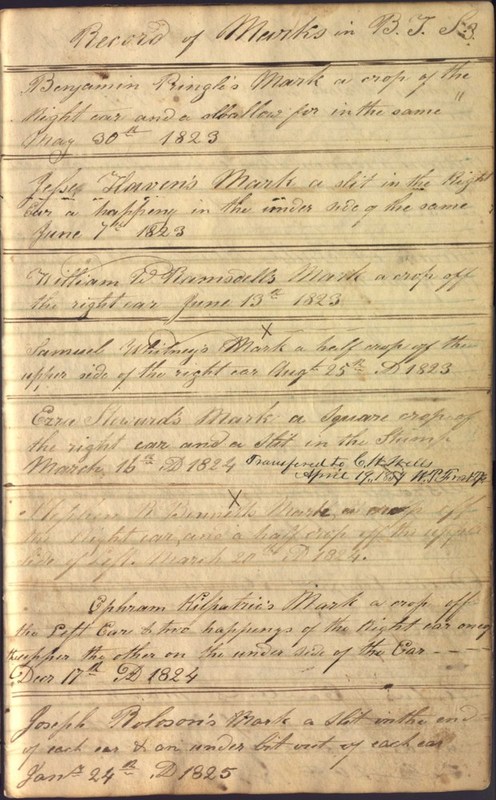 Record of Marks in B. T. S. 3
Benjamin Pringle's Mark a crop of the
Right ear and a swallow for in the same "
May 30th 1823
Jesse Haven's Mark a slit in the Right
Ear a happeny in the under side of the same
June 7th 1823
William W Ramsdells Mark a crop off
the right ear June 13th 1823
X
Samuel Whitney's Mark a half crop off the
upper side of the right ear Augt. 25th AD 1823
Ezra Stewards Mark a Square crop of
the right ear and a Slit in the Stump
March 16th AD 1824 Transfered to C. W. Wells
April 17, 1857
X
W Bennett's Mark a crop off
the Right ear, and a half crop off the upper
side of left. March 20th AD 1824.
Ephram Kilpatric's Mark a crop off
the Left Ear & two happenys of the Right ear on
upper the other on the under side of the Ear
Decr 17th AD 1824
Joseph Roloson's Mark a slit in the end
of each ear & an under bit out of each ear
Jany 24th AD 1825